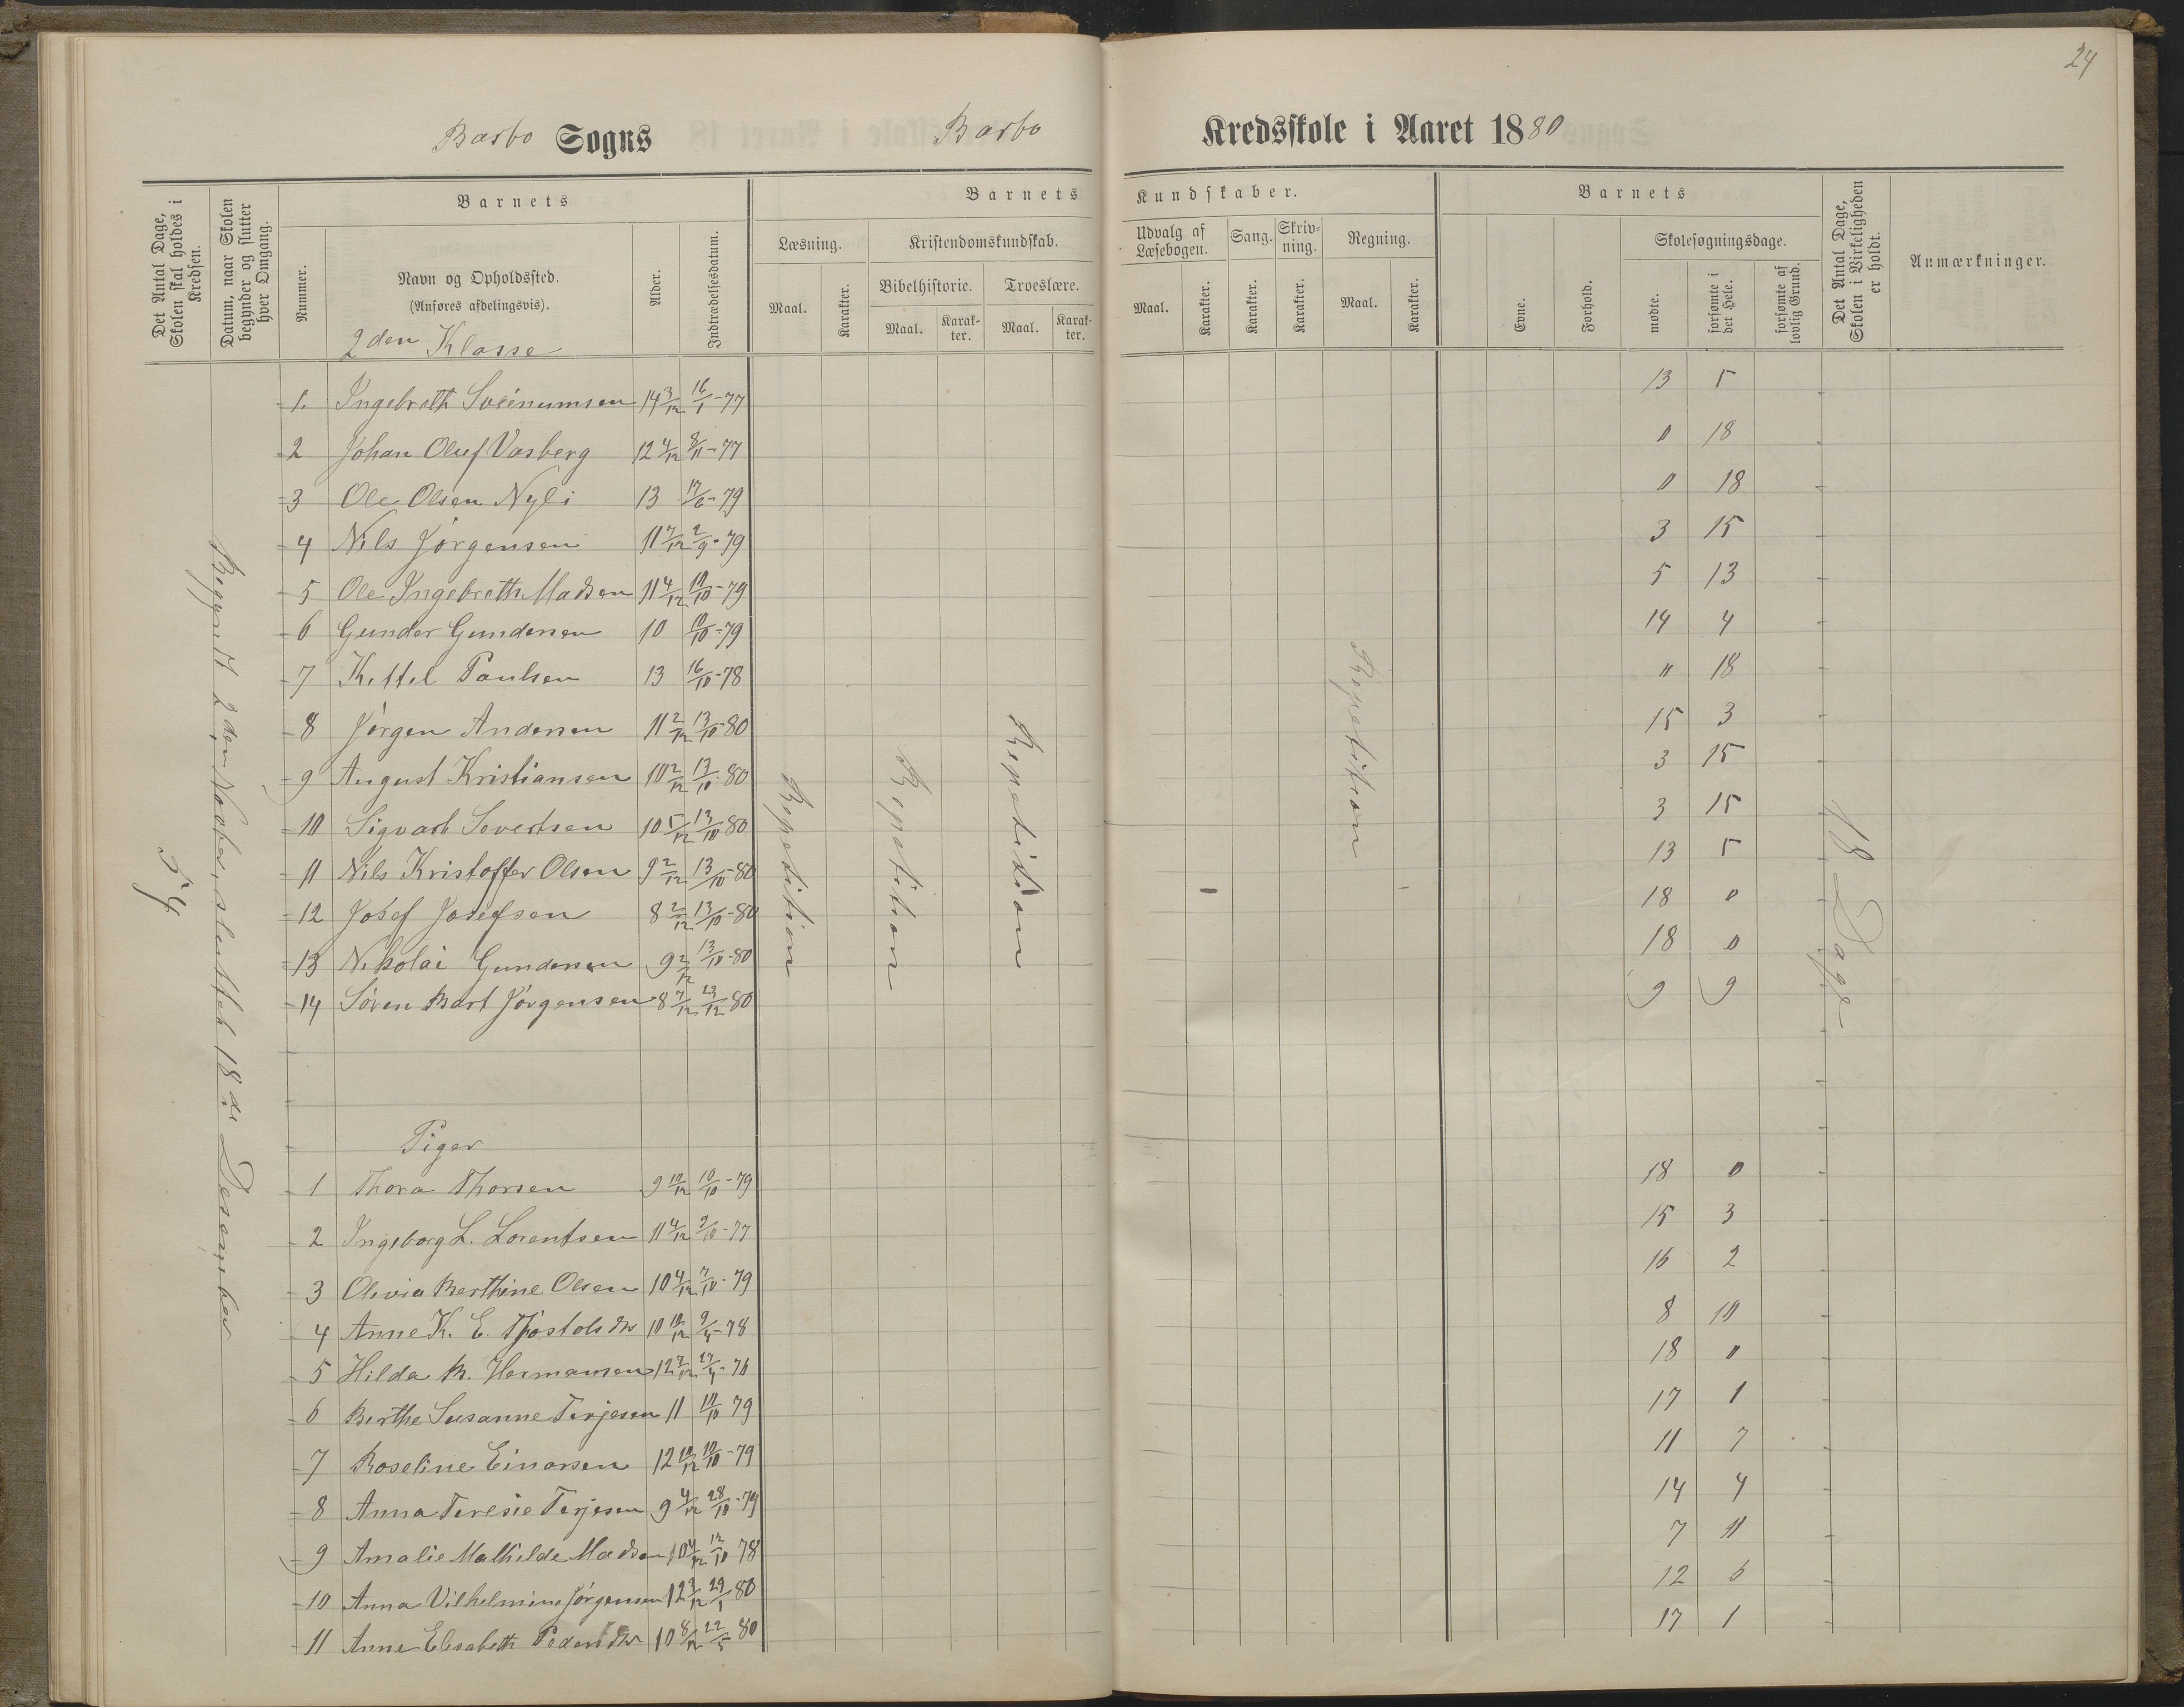 24
Barbo Sogns Barbo Kredsskole i Aaret 1880
Det Antal Dage, Skolen skal holdes i Kredsen.
Datum, naar Skolen begynder og slutter hver Omgang.
Barnets
Nummer.
Navn og Opholdssted.
(Anføres afdelingsvis).
Alder.
Indtrædelsesdatum.
Barnets Kundskaber.
Læsning.
Maal.
Karakter.
Kristendomskundskab.
Bibelhistorie.
Maal.
Karak-
ter.
Troeslære.
Maal.
Karak-
ter.
Udvalg af
Læsebogen.
Maal.
Karakter.
Sang.
Karakter.
Skriv-
ning.
Karakter.
Regning.
Maal.
Karakter.
Barnets
Evne.
Forhold.
Skolesøgningsdage.
mødte.
forsømte i
det Hele.
forsømte af
lovlig Grund.
Det Antal Dage,
Skolen i Virkeligheden
er holdt.
Anmærkninger.
2den Klasse
1. Ingebreth Sveinumsen 14 3/12 16/1-77 13 5
2 Johan Oluf Vasberg 12 4/12 8/11-77 0 18
3 Ole Olsen Nyli 13 17/6-79 0 18
4 Nils Jörgensen 11 7/12 2/9-79 3 15
5 Ole Ingebreth Madsen 11 4/12 10/10-79 5 13
6 Gunder Gundersen 10 10/10-79 14 4
7 Kittel Paulsen 13 16/10-78 " 18
8 Jörgen Andersen 11 2/12 13/10-80 15 3
9 August Kristiansen 10 2/12 13/10-80 3 15
10 Sigvart Severtsen 10 5/12 13/10 80 3 15
11 Nils Kristoffer Olsen 9 2/12 13/10-80 13 5
12 Josef Josefsen 8 2/12 13/10-80 18 0
13 Nikolai Gundersen 9 2/12 13/10-80 18 0
14 Sören Bart Jörgensen 8 7/12 23/12 80 9 9
Begyndt 2den November, sluttet 18de Desember
54
Repetition
Repetition
Repetition
Repetition
18 Dage
Piger
1 Thora Thorsen 9 10/12 10/10-79 18 0
2 Ingeborg L. Lorentsen 11 4/12 9/10-77 15 3
3 Olivia Berthine Olsen 10 4/12 7/10-79 16 2
4 Anne K. E. Thostolsdtr 10 10/12 9/4-78 8 10
5 Hilda B. Hermansen 12 7/12 27/4-76 18 0
6 Berthe Susanne Terjesen 11 10/10 79 17 1
7 Roseline Einarsen 12 10/12 10/10-79 11 7
8 Anna Teresie Terjesen 9 4/12 28/10-79 14 4
9 Amalie Mathilde Madsen 10 4/12 12/10 78 7 11
10 Anna Vilhelmine Jörgensen 12 3/12 29/1 80 12 6
11 Anne Elisabeth Pedersdtr 10 8/12 22/5 80 17 1